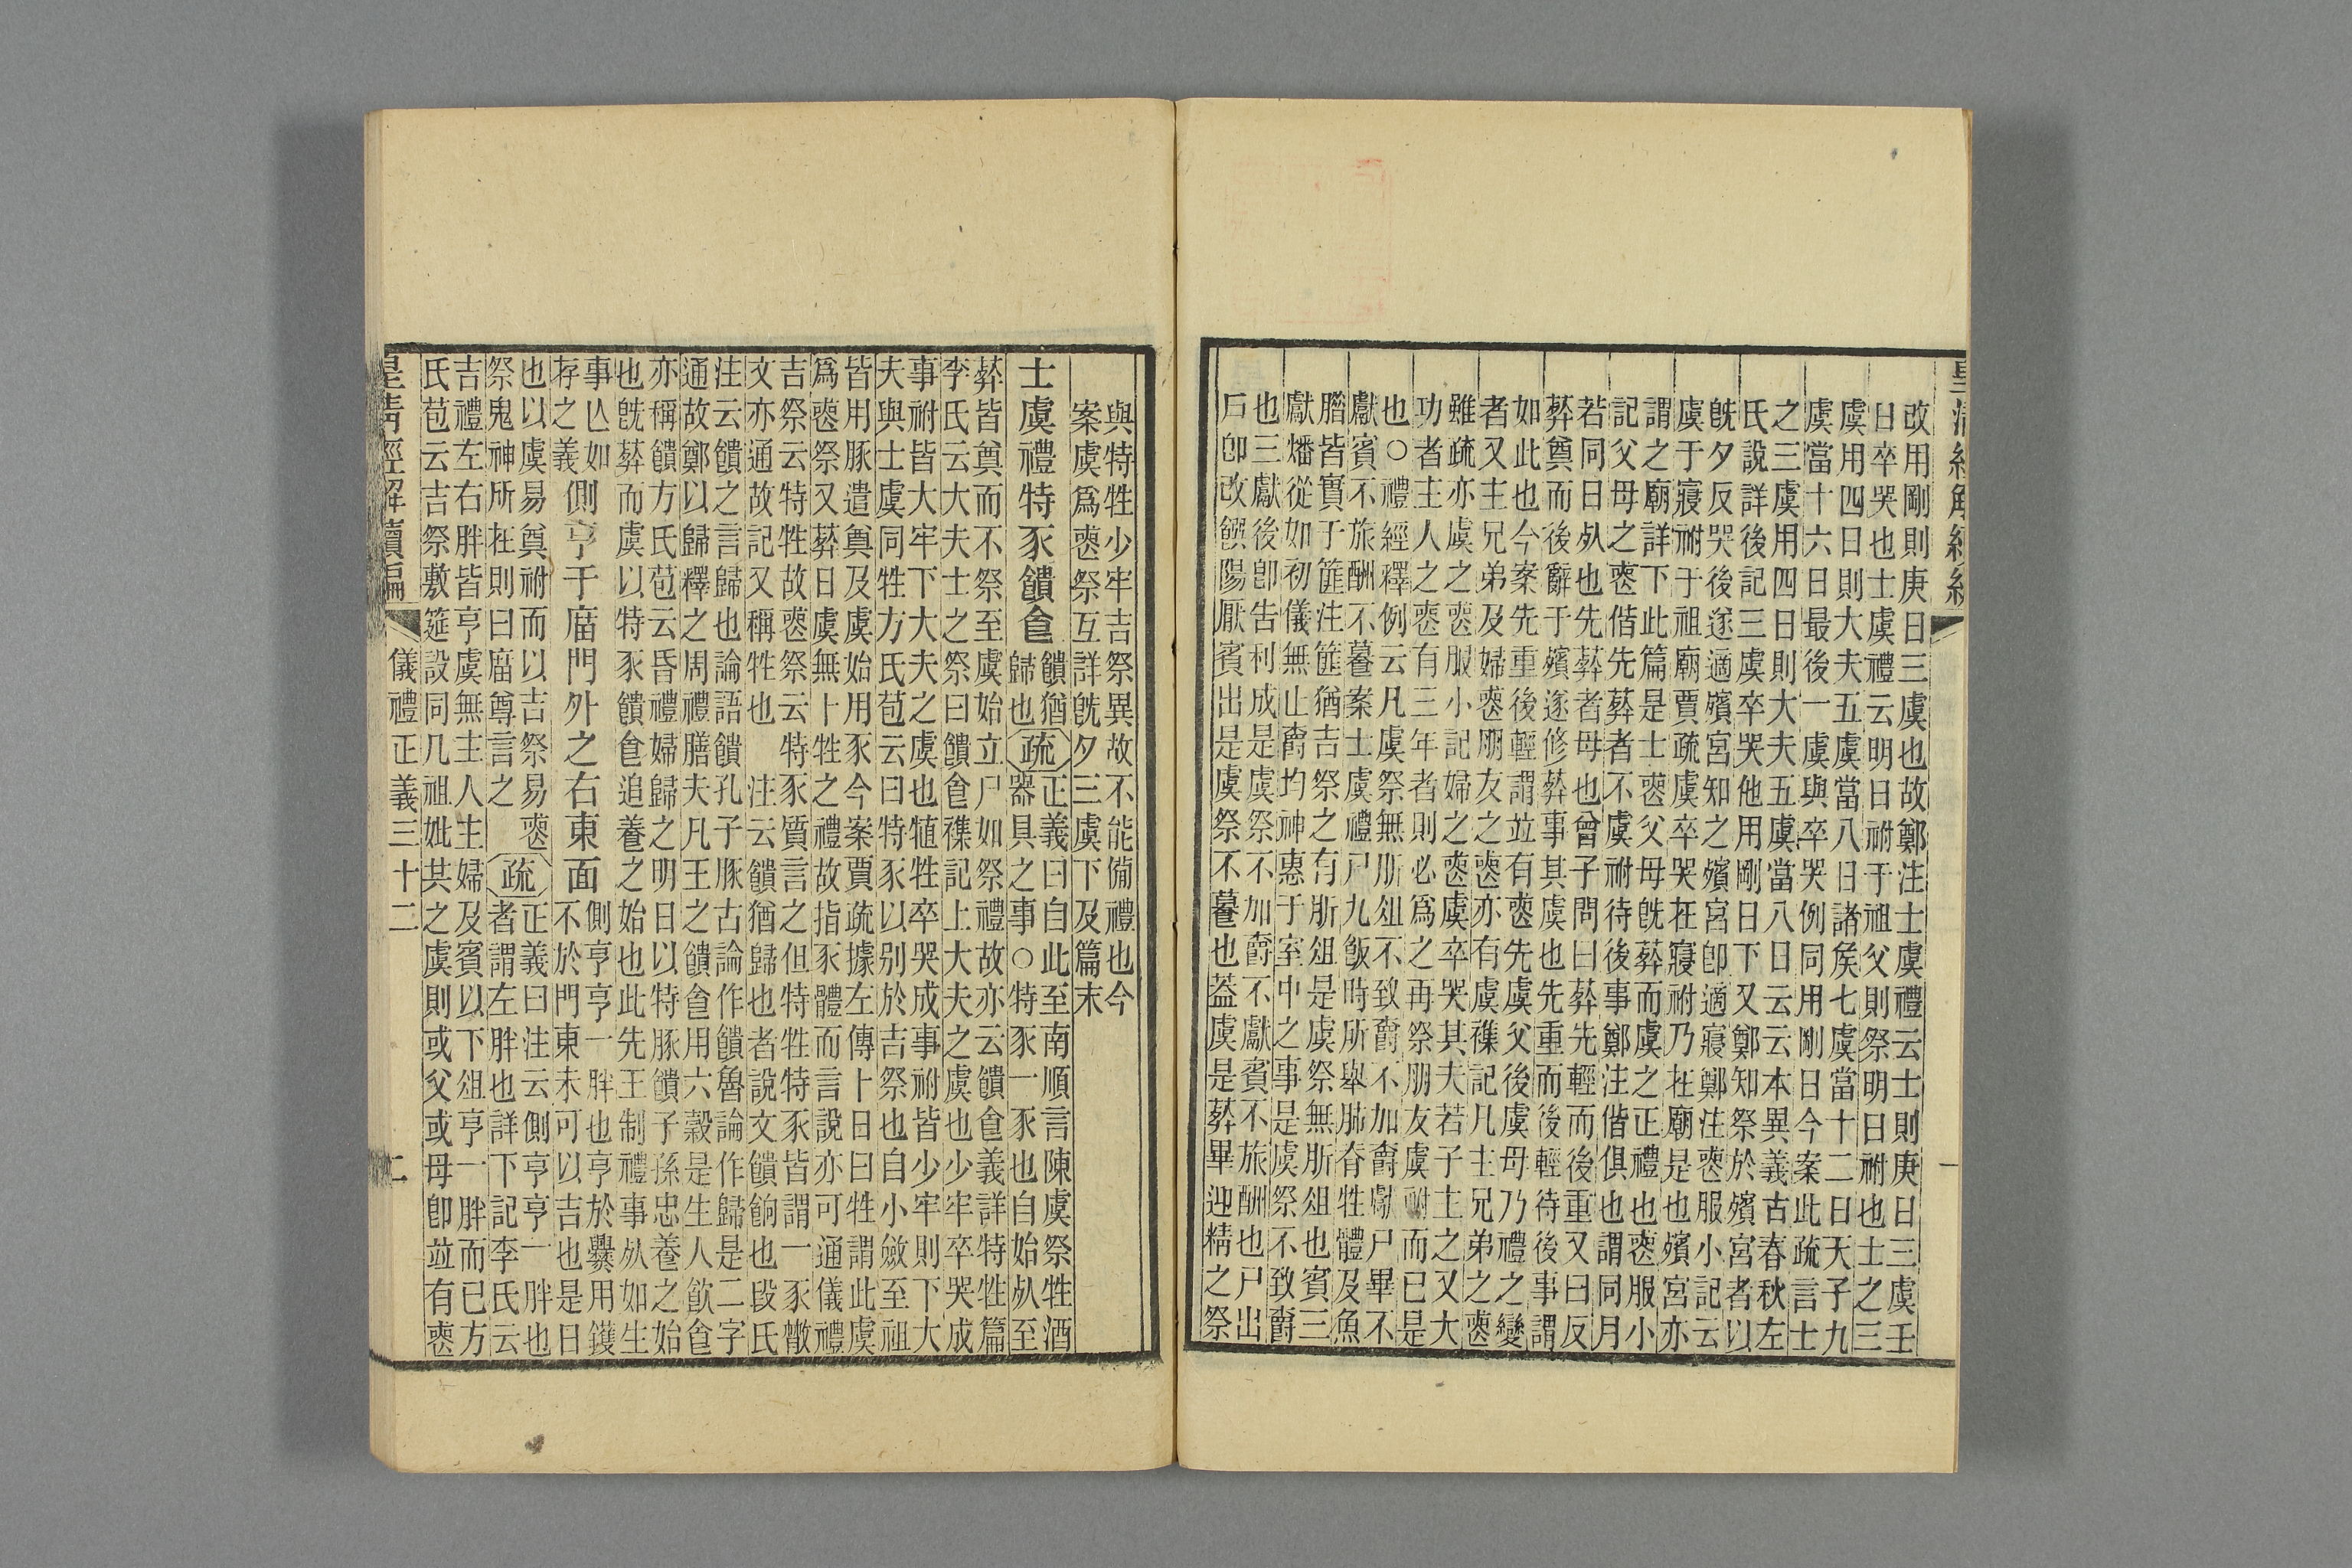 改用剛則庚日三虞也故鄭注士虞禮云士則庚日三虞壬
日卒哭也士虞禮云明日祔于祖父則祭明日祔也士之三
虞用四日則大夫五虞當八日諸矦七虞當十二日天子九
虞當十六日最後一虞與卒哭例同用剛日今案此疏言士
之三虞用四日則大夫五虞當八日云云本異義古春秋左
氏說詳後記三虞卒哭他用剛日下又鄭知祭於殯宮者以
旣夕反哭後遂適殯宮知之殯宮卽適寢鄭注喪服小記云
虞于寢祔于祖廟賈疏虞卒哭在寢祔乃在廟是也殯宮亦
謂之廟詳下此篇是士喪父母旣葬而虞之正禮也喪服小
記父母之喪偕先葬者不虞祔待後事鄭注偕俱也謂同月
若同日死也先葬者母也曾子問曰葬先輕而後重又曰反
葬奠而後辭于殯遂修葬事其虞也先重而後輕待後事謂
如此也今案先重後輕謂竝有喪先虞父後虞母乃禮之變
者又主兄弟及婦喪朋友之喪亦有虞襍記凡主兄弟之喪
雖疏亦虞之喪服小記婦之喪虞卒哭其夫若子主之又大
功者主人之喪有三年者則必爲之再祭朋友虞祔而已是
也○禮經釋例云凡虞祭無肵俎不致爵不加爵獻尸畢不
獻賓不旅酬不餕案士虞禮尸九飯時所舉肺脊牲體及魚
腊皆實于篚注篚猶吉祭之有肵俎是虞祭無肵俎也賓三
獻燔從如初儀無止爵均神惠于室中之事是虞祭不致爵
也三獻後卽告利成是虞祭不加爵不獻賓不旅酬也尸出
戶卽改饌陽厭賓出是虞祭不餕也蓋虞是葬畢迎精之祭
與特牲少牢吉祭異故不能備禮也今
案虞爲喪祭互詳旣夕三虞下及篇末
士虞禮特豕饋食饋猶歸也疏正義曰自此至南順言陳虞祭牲酒器具之事○特豕一豕也自始死至
葬皆奠而不祭至虞始立尸如祭禮故亦云饋食義詳特牲篇
李氏云大夫士之祭曰饋食襍記上大夫之虞也少牢卒哭成
事祔皆大牢下大夫之虞也犆牲卒哭成事祔皆少牢則下大
夫與士虞同牲方氏苞云曰特豕以别於吉祭也自小斂至祖
皆用豚遣奠及虞始用豕今案賈疏據左傳卜日曰牲謂此虞
爲喪祭又葬日虞無卜牲之禮故指豕體而言說亦可通儀禮
吉祭云特牲故喪祭云特豕質言之但特牲特豕皆謂一豕散
文亦通故記又稱牲也 注云饋猶歸也者說文饋餉也段氏
注云饋之言歸也論語饋孔子豚古論作饋魯論作歸是二字
通故鄭以歸釋之周禮膳夫凡王之饋食用六穀是生人飲食
亦稱饋方氏苞云昏禮婦歸之明日以特豚饋子孫忠養之始
也旣葬而虞以特豕饋食追養之始也此先王制禮事死如生
事亾如存之義側亨于庿門外之右東面側亨亨一胖也亨於爨用鑊不於門東未可以吉也是日
也以虞易奠祔而以吉祭易喪祭鬼神所在則曰庿尊言之疏正義曰注云側亨亨一胖也者謂左胖也詳下記李氏云
吉禮左右胖皆亨虞無主人主婦及賓以下俎亨一胖而已方
氏苞云吉祭敷筵設同几祖妣共之虞則或父或母卽竝有喪
皇清經解續編 儀禮正義三十二 二